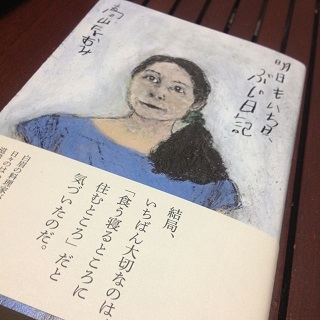 明日もいち日、
ぶじ日記
高山なおみ
結局、
いちばん大切なのは、
「食う寝るところに
住むところ」だと
気づいたのだ。